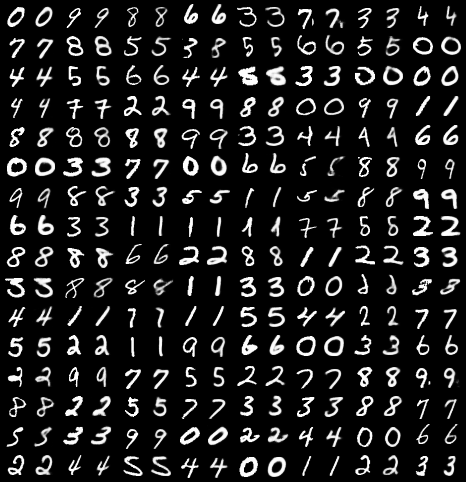 0 0 9 9 8 8 6 6 3 3 7 7 3 3 4 4
7 7 8 8 5 5 3 8 5 5 6 6 5 5 0 0
4 4 5 5 6 6 4 4 5 5 3 3 0 0 0 0
4 4 7 7 2 2 9 9 8 8 0 0 9 9 1 1
8 8 8 8 8 8 9 9 3 3 4 4 4 4 6 6
0 0 3 3 7 7 0 0 6 6 5 5 8 8 9 9
9 9 8 8 3 3 5 5 1 1 5 5 8 8 9 9
6 6 3 3 1 1 1 1 1 1 7 7 5 5 2 2
8 8 8 8 6 6 2 2 8 8 1 1 2 2 3 3
3 3 8 8 8 8 1 1 3 3 0 0 3 3
4 4 1 1 7 7 1 1 5 5 4 4 2 2 7 7
5 5 2 2 1 1 9 9 6 6 0 0 3 3 6 6
2 2 9 9 7 7 5 5 2 2 7 7 8 8 9 9
8 8 2 2 5 5 7 7 3 3 3 3 8 8 7 7
5 5 3 3 9 9 0 0 2 2 4 4 0 0 6 6
2 2 4 4 5 5 4 4 0 0 1 1 2 2 3 3